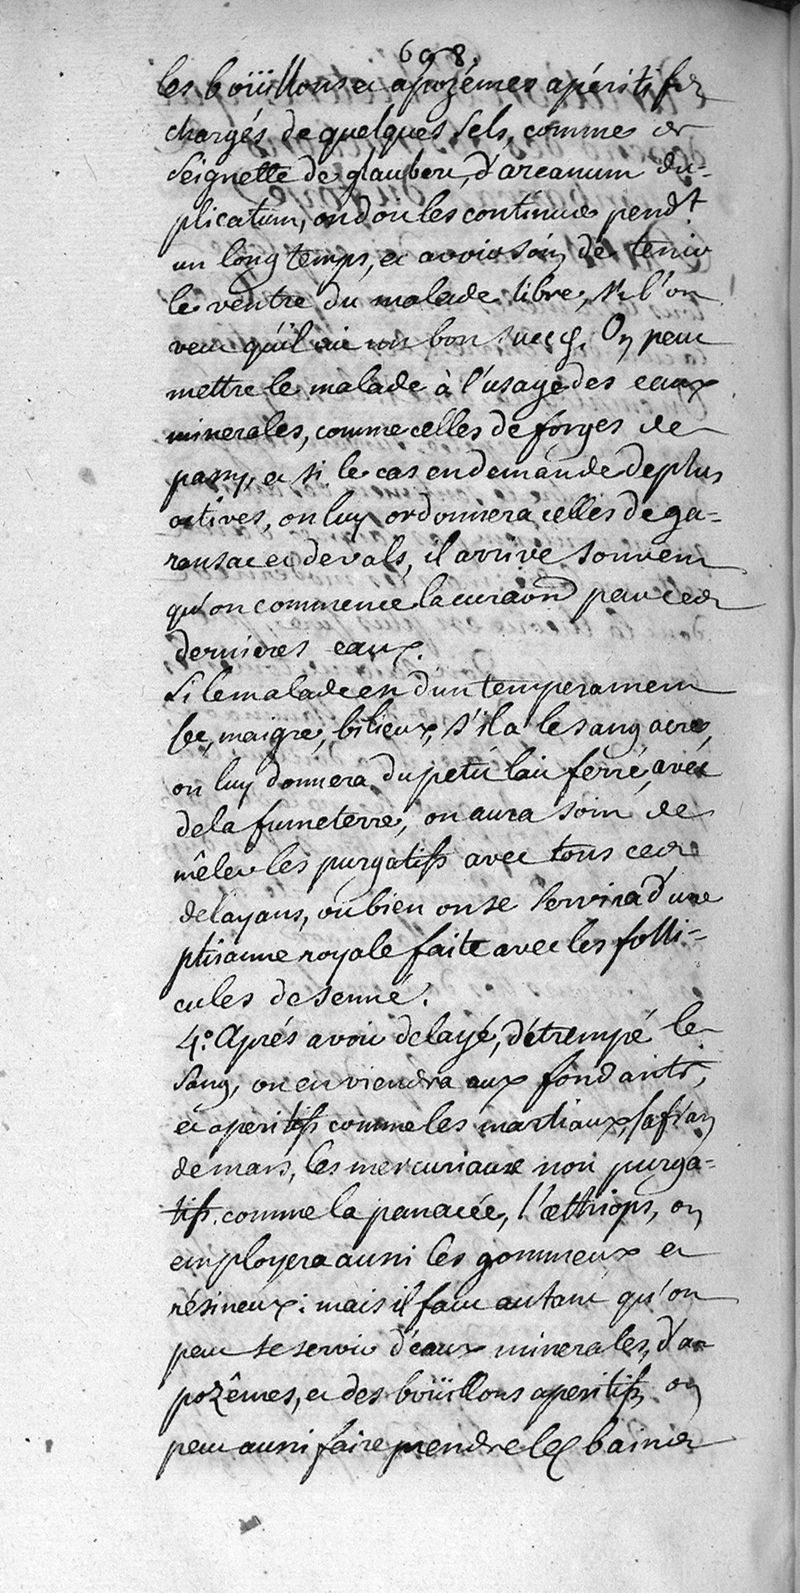 698.
les boüillons et apozémes apéritifs
chargés de quelques sels, comme de
seignette de glauber, d'arcanum du-
plicatum, on doit les continuer pendt
un long temps, et avoir soin de tenir
le ventre du malade libre, si l'on
veut qu'il ait un bon succés. On peut
mettre le malade à l'usage des eaux
minerales, comme celles de forges de
passy, et si le cas en demande de plus
actives, on luy ordonnera celles de ga-
ransac et de vals, il arrive souvent
qu'on commence la curaõn par ces
dernieres eaux.
Si le malade est d'un temperament
sec, maigre, bilieux, s'il a le sang acre,
on luy donnera du petit lait ferré, avec
de la fumeterre, on aura soin de
mêler les purgatifs avec tous ces
delayans, ou bien on se servira d'une
ptisanne royale faite avec les folli-
cules de senné.
4.° Aprés avoir delayé, détrempé le
sang, on en viendra aux fondants,
et aperitifs comme les martiaux, safran
de mars, les mercuriaux non purga-
tifs comme la panacée, l'æthiops, on
employera aussi les gommeux et
résineux: mais il faut autant qu'on
peut se servir d'eaux minerales, d'a-
pozêmes, et des boüillons aperitifs, on
peut aussi faire prendre les bains